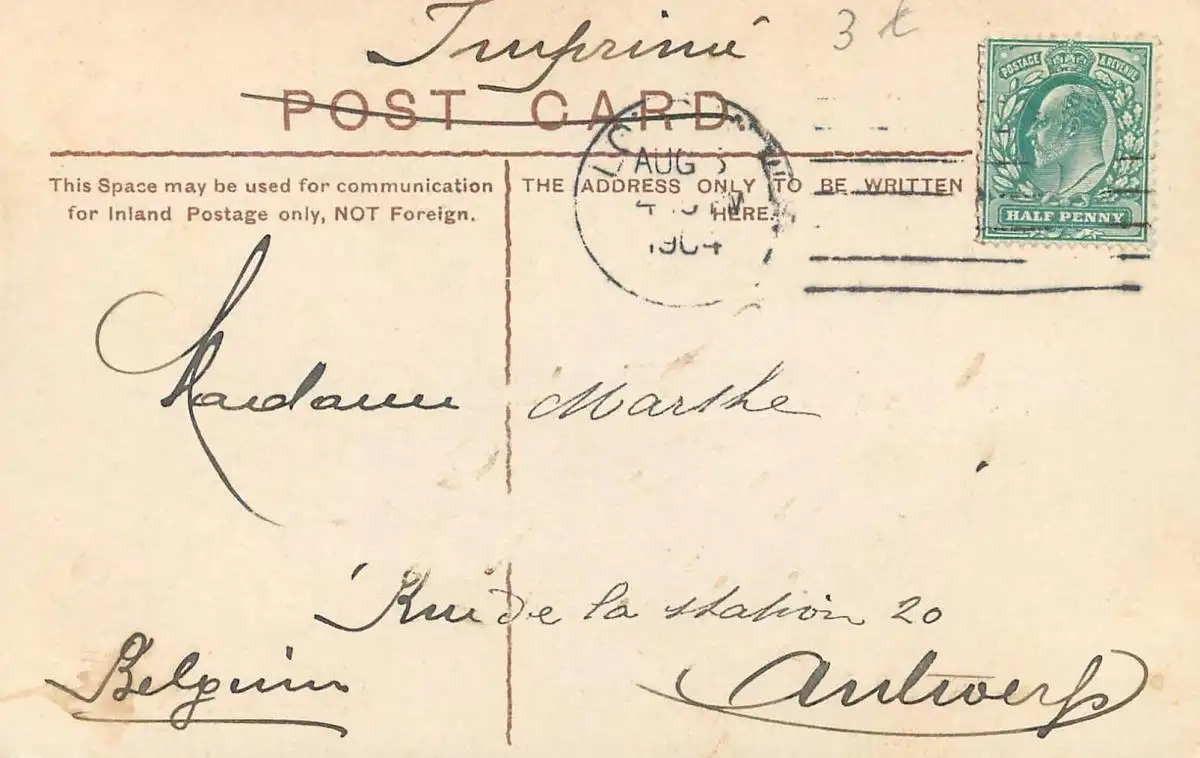 Imprimé
3
POST CARD
POSTAGE & REVENUE
HALF PENNY
AUG
1904
This Space may be used for communication
for Inland Postage only, NOT Foreign.
THE ADDRESS ONLY TO BE WRITTEN
HERE.
Madame Marthe
Rue de la station 20
Belgium
Antwerp